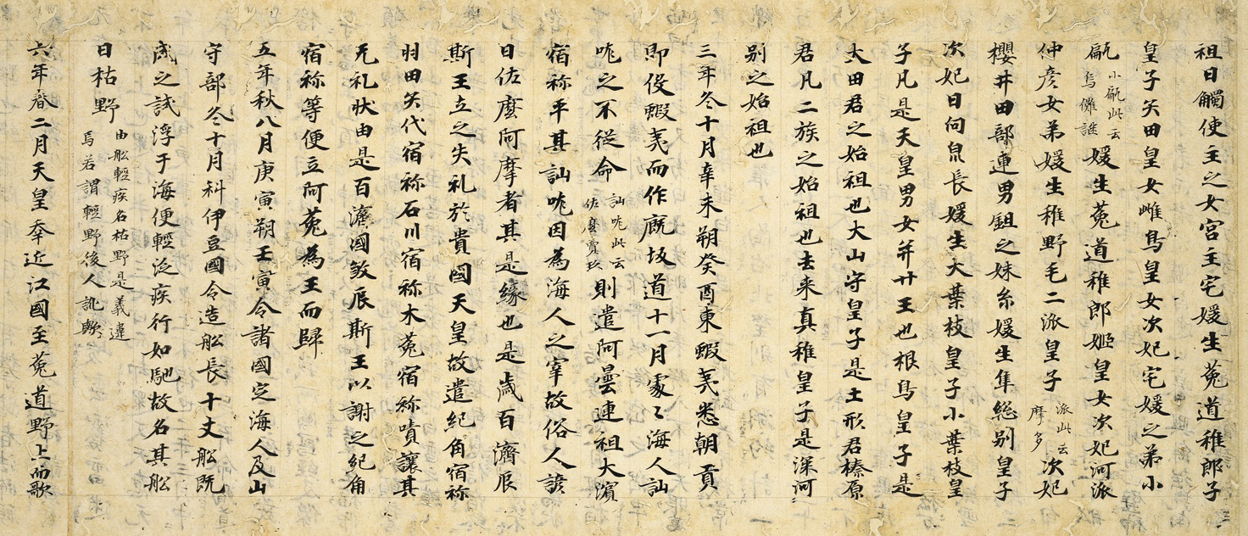 祖日觸使主之女宮主宅媛生菟道稚郎子
皇子矢田皇女雌鳥皇女次妃宅媛之弟小
甂小甂此云烏儺謎媛生菟道稚郎姬皇女次妃河派
仲彦女弟媛生稚野毛二派皇子派此云摩多次妃
櫻井田部連男鉏之妹糸媛生隼総別皇子
次妃日向泉長媛生大葉枝皇子小葉枝皇
子凡是天皇男女并廿王也根鳥皇子是
大田君之始祖也大山守皇子是土形君榛原
君凡二族之始祖也去来真稚皇子是深河
別之始祖也
三年冬十月辛未朔癸酉東蝦夷悉朝貢
即役蝦夷而作厩坂道十一月處〻海人訕
哤之不従命訕哤此云佐麼賣玖則遣阿曇連祖大濱
宿祢平其訕哤因為海人之宰故俗人諺
曰佐麼阿摩者其是緣也是歲百濟辰
斯王立之失礼於貴國天皇故遣紀角宿祢
羽田矢代宿祢石川宿祢木菟宿祢嘖讓其
无礼狀由是百濟國殺辰斯王以謝之紀角
宿祢等便立阿菟為王而歸
五年秋八月庚寅朔壬寅令諸國定海人及山
守部冬十月科伊豆國令造舩長十丈舩既
成之試浮于海便輕泛疾行如馳故名其舩
曰枯野由舩輕疾名枯野是義違焉若謂輕野後人訛歟
六年春二月天皇幸近江國至菟道野上而歌